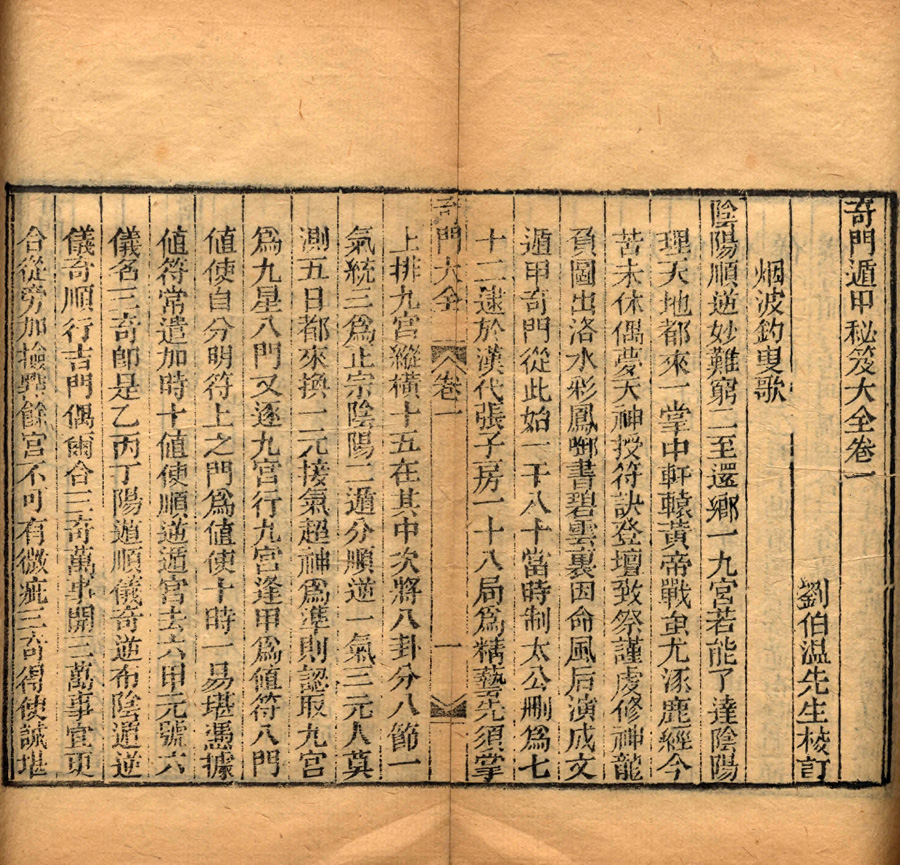 奇門遁甲秘笈大全卷一
劉伯温先生校訂
烟波釣叟歌
陰陽順逆妙難窮二至還鄉一九宮若能了達陰陽
理天地都來一掌中軒轅黃帝戰蚩尤涿鹿經今
苦未休偶夢天神授符訣登壇致祭謹虔修神龍
負圖出洛水彩鳳啣書碧雲裏因命風后演成文
遁甲奇門從此始一千八十當時制太公刪爲七
十二逮於漢代張子房一十八局爲精藝先須掌
奇門大全 卷一 一
上排九宮縱橫十五在其中次將八卦分八節一
氣統三爲正宗陰陽二遁分順逆一氣三元人莫
測五日都來換一元接氣超神爲準則認取九宮
爲九星八門又逐九宮行九宮逢甲爲値符八門
値使自分明符上之門爲値使十時一易堪憑據
値符常遣加時十値使順逆遁宮去六甲元號六
儀名三奇卽是乙丙丁陽遁順儀奇逆布陰遁逆
儀奇順行吉門偶爾合三奇萬事開三萬事宜更
合從旁加撿點餘宮不可有微疵三奇得使誠堪